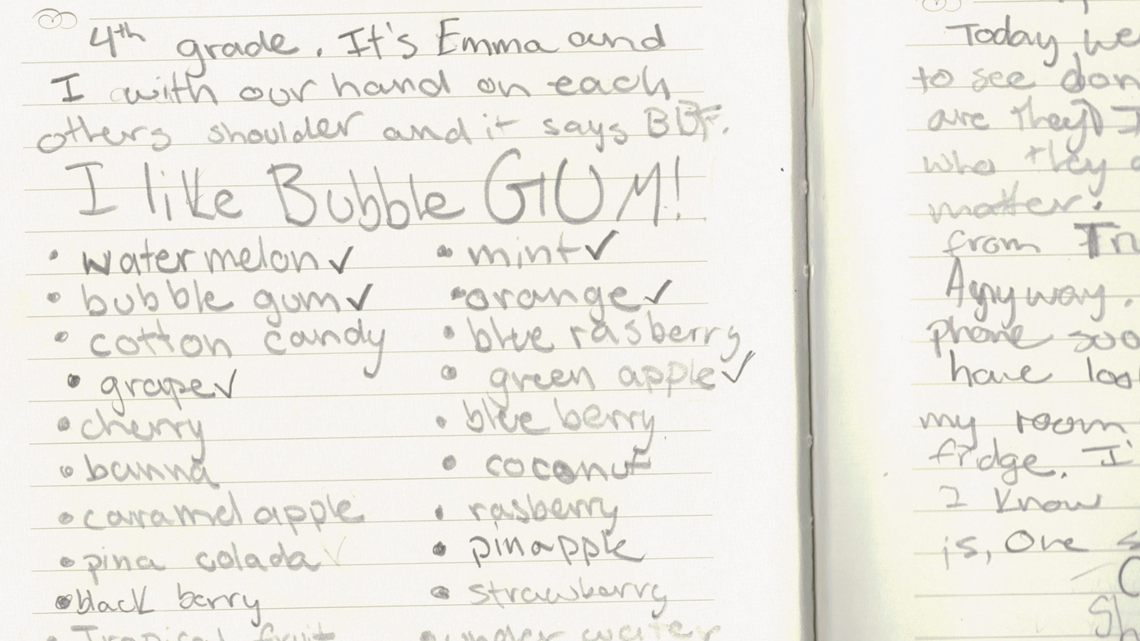 4th grade. It's Emma and
I with our hand on each
others shoulder and it says BFF.
I like Bubble GUM!
• watermelon ✓
• bubble gum ✓
• cotton candy
• grape ✓
• cherry
• banna
• caramel apple
• pina colada ✓
• black berry
• Tropical fruit
• mint ✓
• orange ✓
• blue rasberry
• green apple ✓
• blue berry
• coconut
• rasberry
• pinapple
• strawberry
• under water
Today we
to see
are they? I
who they
matter.
from
Anyway.
phone
have
my room
fridge. I
I know
is, One